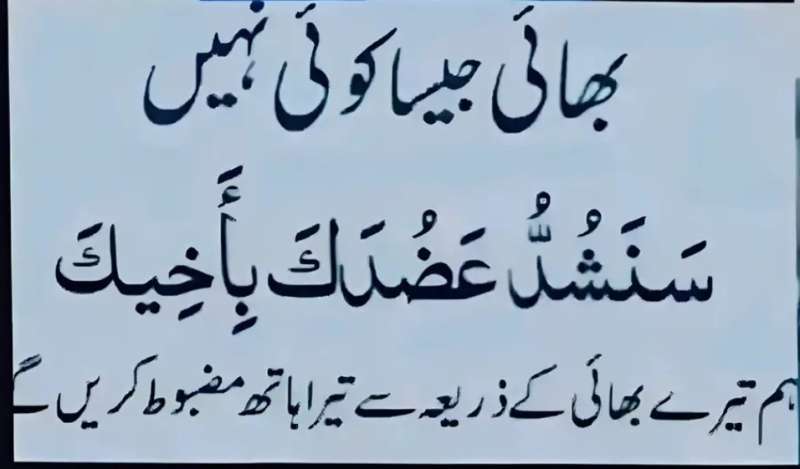 بھائی جیسا کوئی نہیں
سَنَشُدُّ عَضُدَكَ بِأَخِيكَ
ہم تیرے بھائی کے ذریعہ سے تیرا ہاتھ مضبوط کریں گے